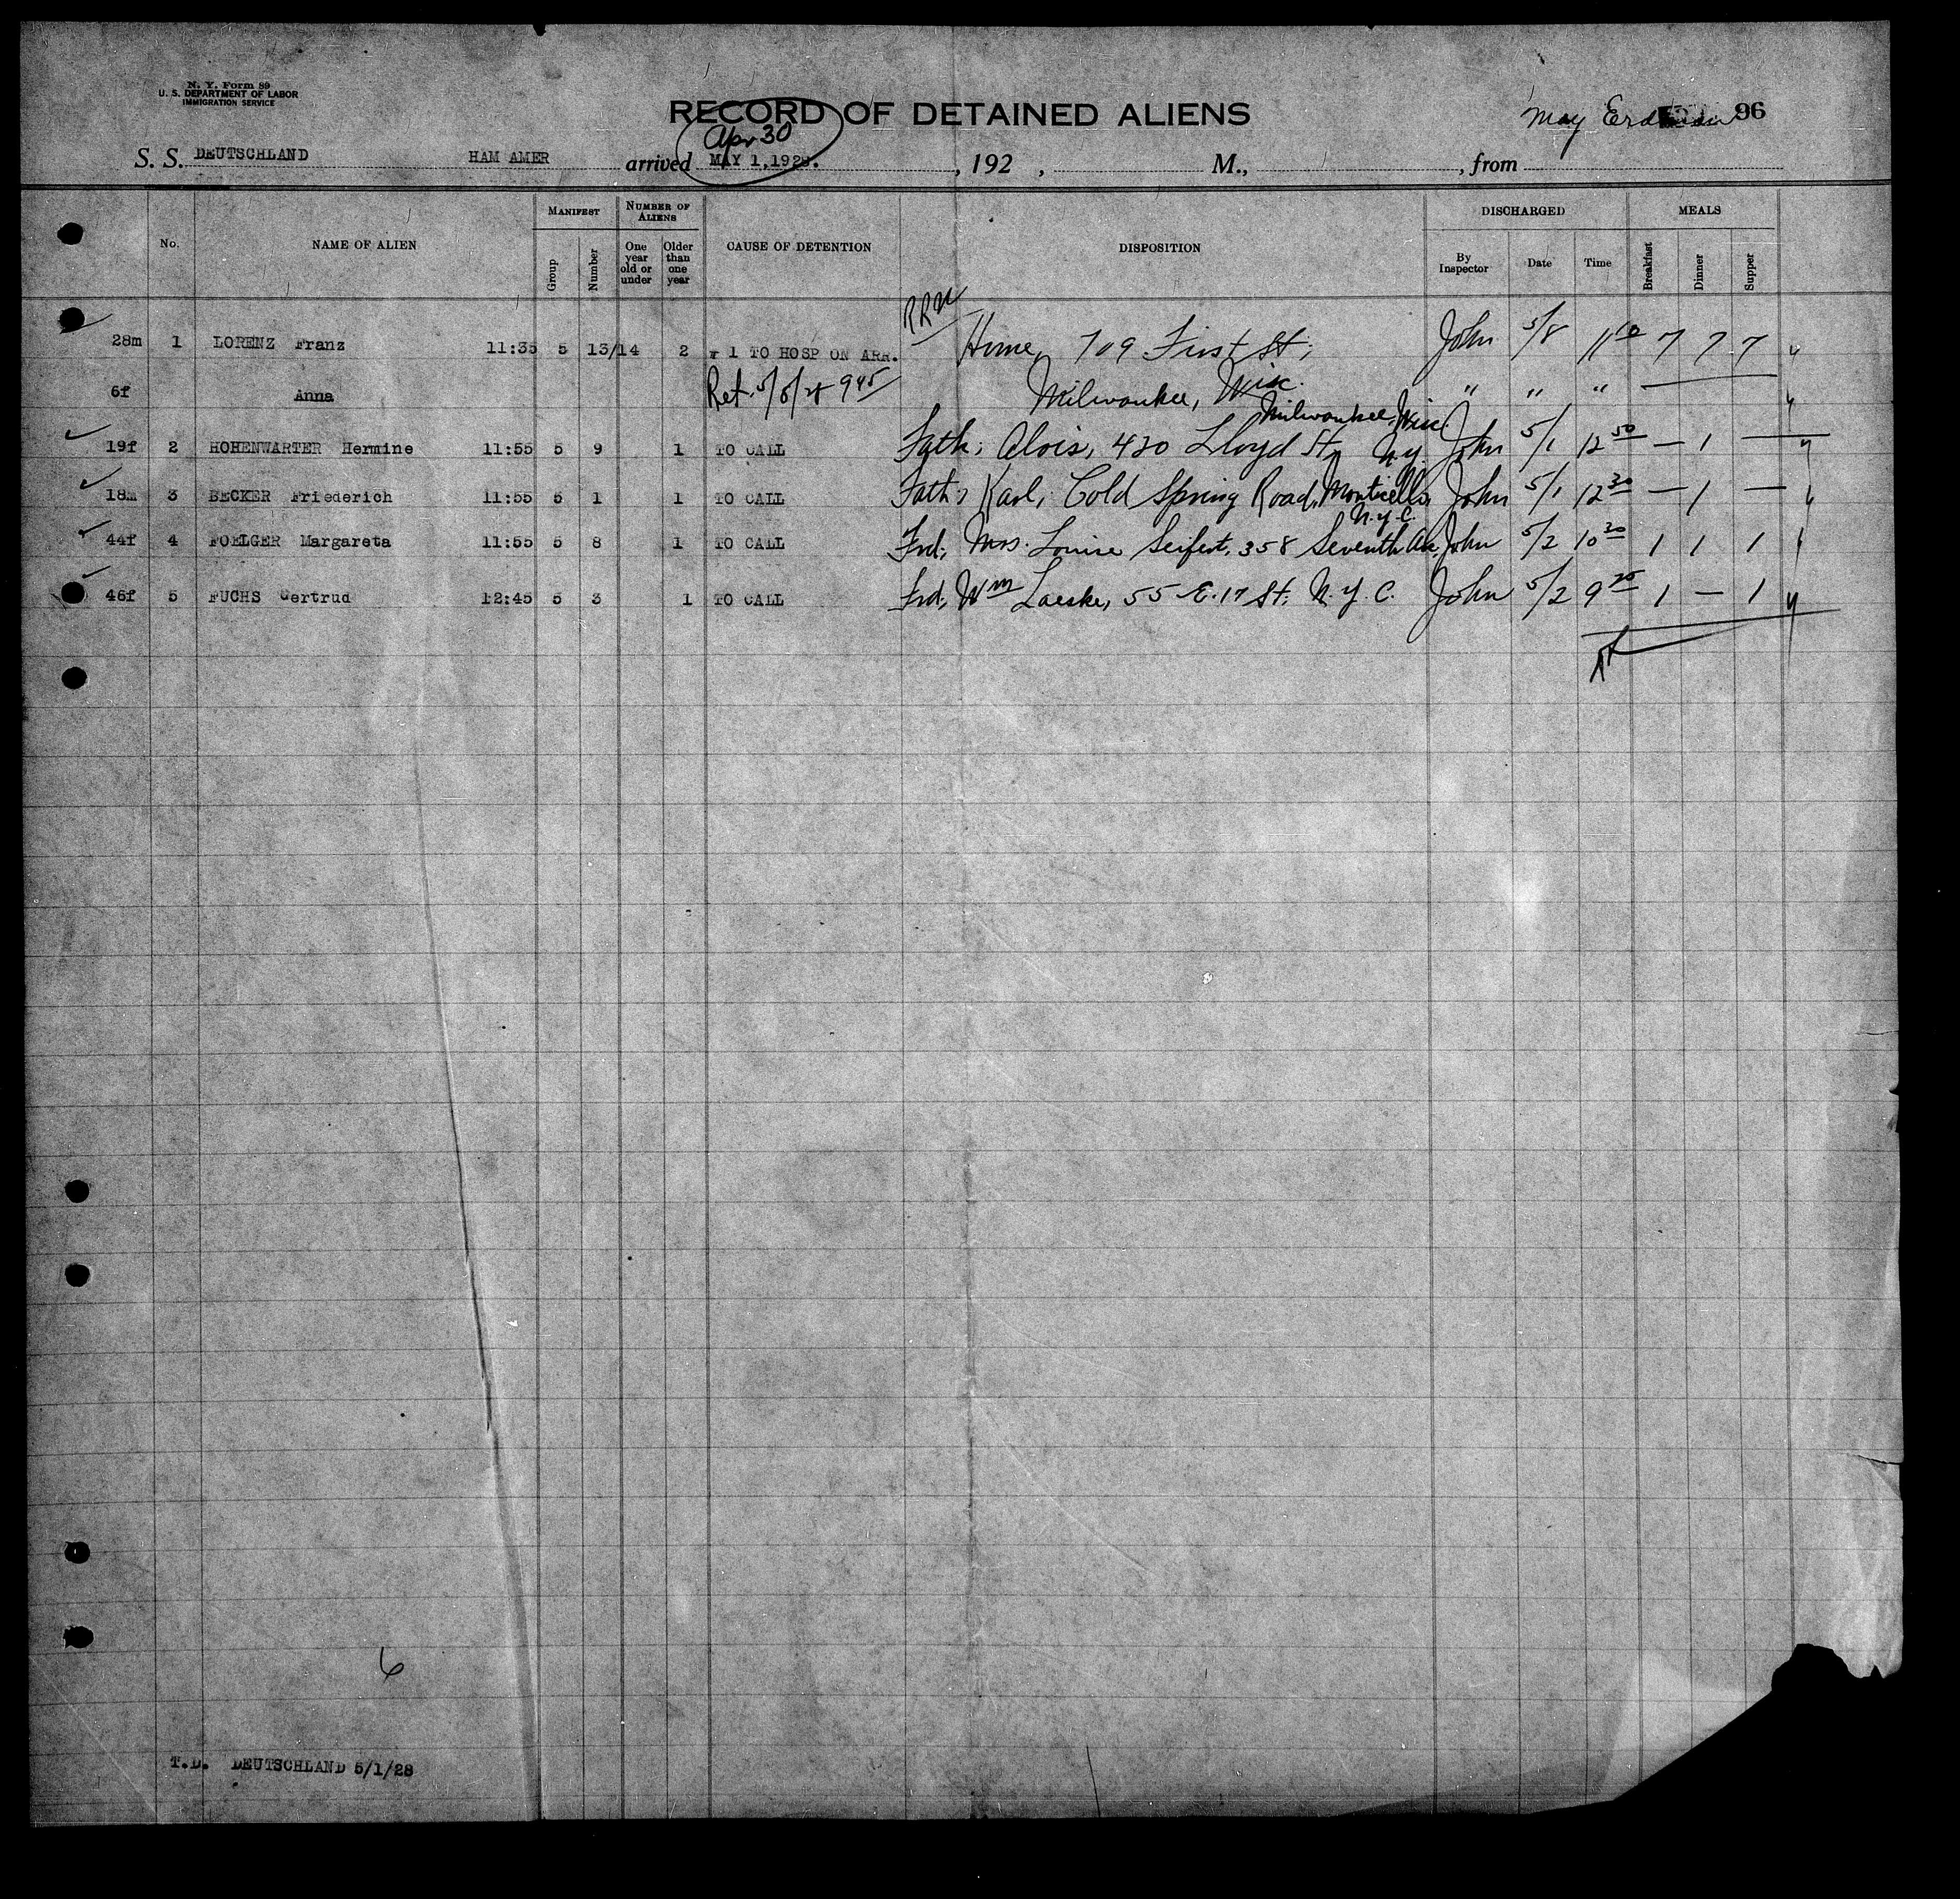 N. Y. Form 89
U. S. DEPARTMENT OF LABOR
IMMIGRATION SERVICE
RECORD OF DETAINED ALIENS
May 96
Apr 30
S. S. DEUTSCHLAND HAM AMER arrived MAY 1, 1928. , 192 , M., , from
MANIFEST NUMBER OF ALIENS DISCHARGED MEALS
No. NAME OF ALIEN Group Number One year old or under Older than one year CAUSE OF DETENTION DISPOSITION By Inspector Date Time Breakfast Dinner Supper
28m 1 LORENZ Franz 11:35 5 13/14 2 1 TO HOSP ON ARR. Home, 709 First St; John 5/8 11 10 7 7 7
6f Anna Ret. 5/8/28 9 45 Milwaukee, Wisc. " " "
Milwaukee, Wisc.
19f 2 HOHENWARTER Hermine 11:55 5 9 1 TO CALL Fath; Alois, 420 Lloyd St, N.Y. John 5/1 12 50 — 1 —
18m 3 BECKER Friederich 11:55 5 1 1 TO CALL Fath; Karl, Cold Spring Road, Monticello John 5/1 12 30 — 1 —
N.Y.C.
44f 4 FOELGER Margareta 11:55 5 8 1 TO CALL Frd; Mrs. Louise Seifert, 358 Seventh Av, John 5/2 10 20 1 1 1
46f 5 FUCHS Gertrud 12:45 5 3 1 TO CALL Frd, Wm Laeske, 55 E. 17 St; N.Y.C. John 5/2 9 25 1 — 1
6
T.D. DEUTSCHLAND 5/1/28